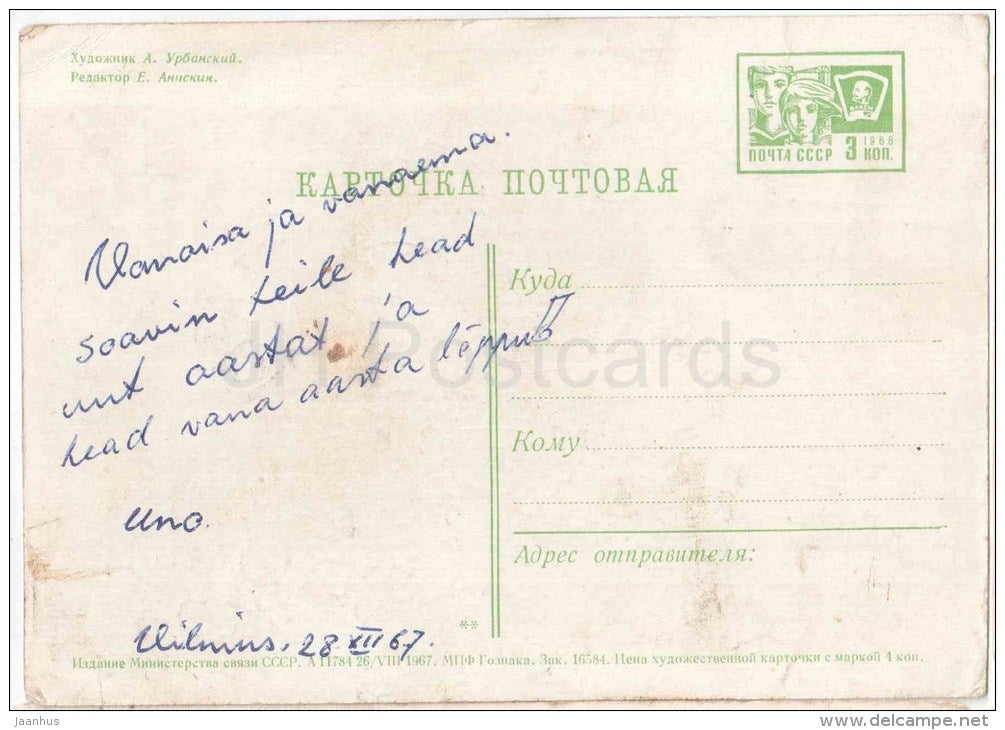 Художник А. Урбанский.
Редактор Е. Анискин.
ПОЧТА СССР 3 КОП.
1966
ВЛКСМ
КАРТОЧКА ПОЧТОВАЯ
Vanaisa ja vanaema.
soavin teile head
uut aastat ja
head vana aasta lõppu
Uno.
Vilnius. 28 XII 67.
Куда
Кому
Адрес отправителя:
**
Издание Министерства связи СССР. А 11784 26/VIII 1967. МПФ Гознака. Зак. 16584. Цена художественной карточки с маркой 4 коп.
JH Postcards
jaanhus
www.delcampe.net